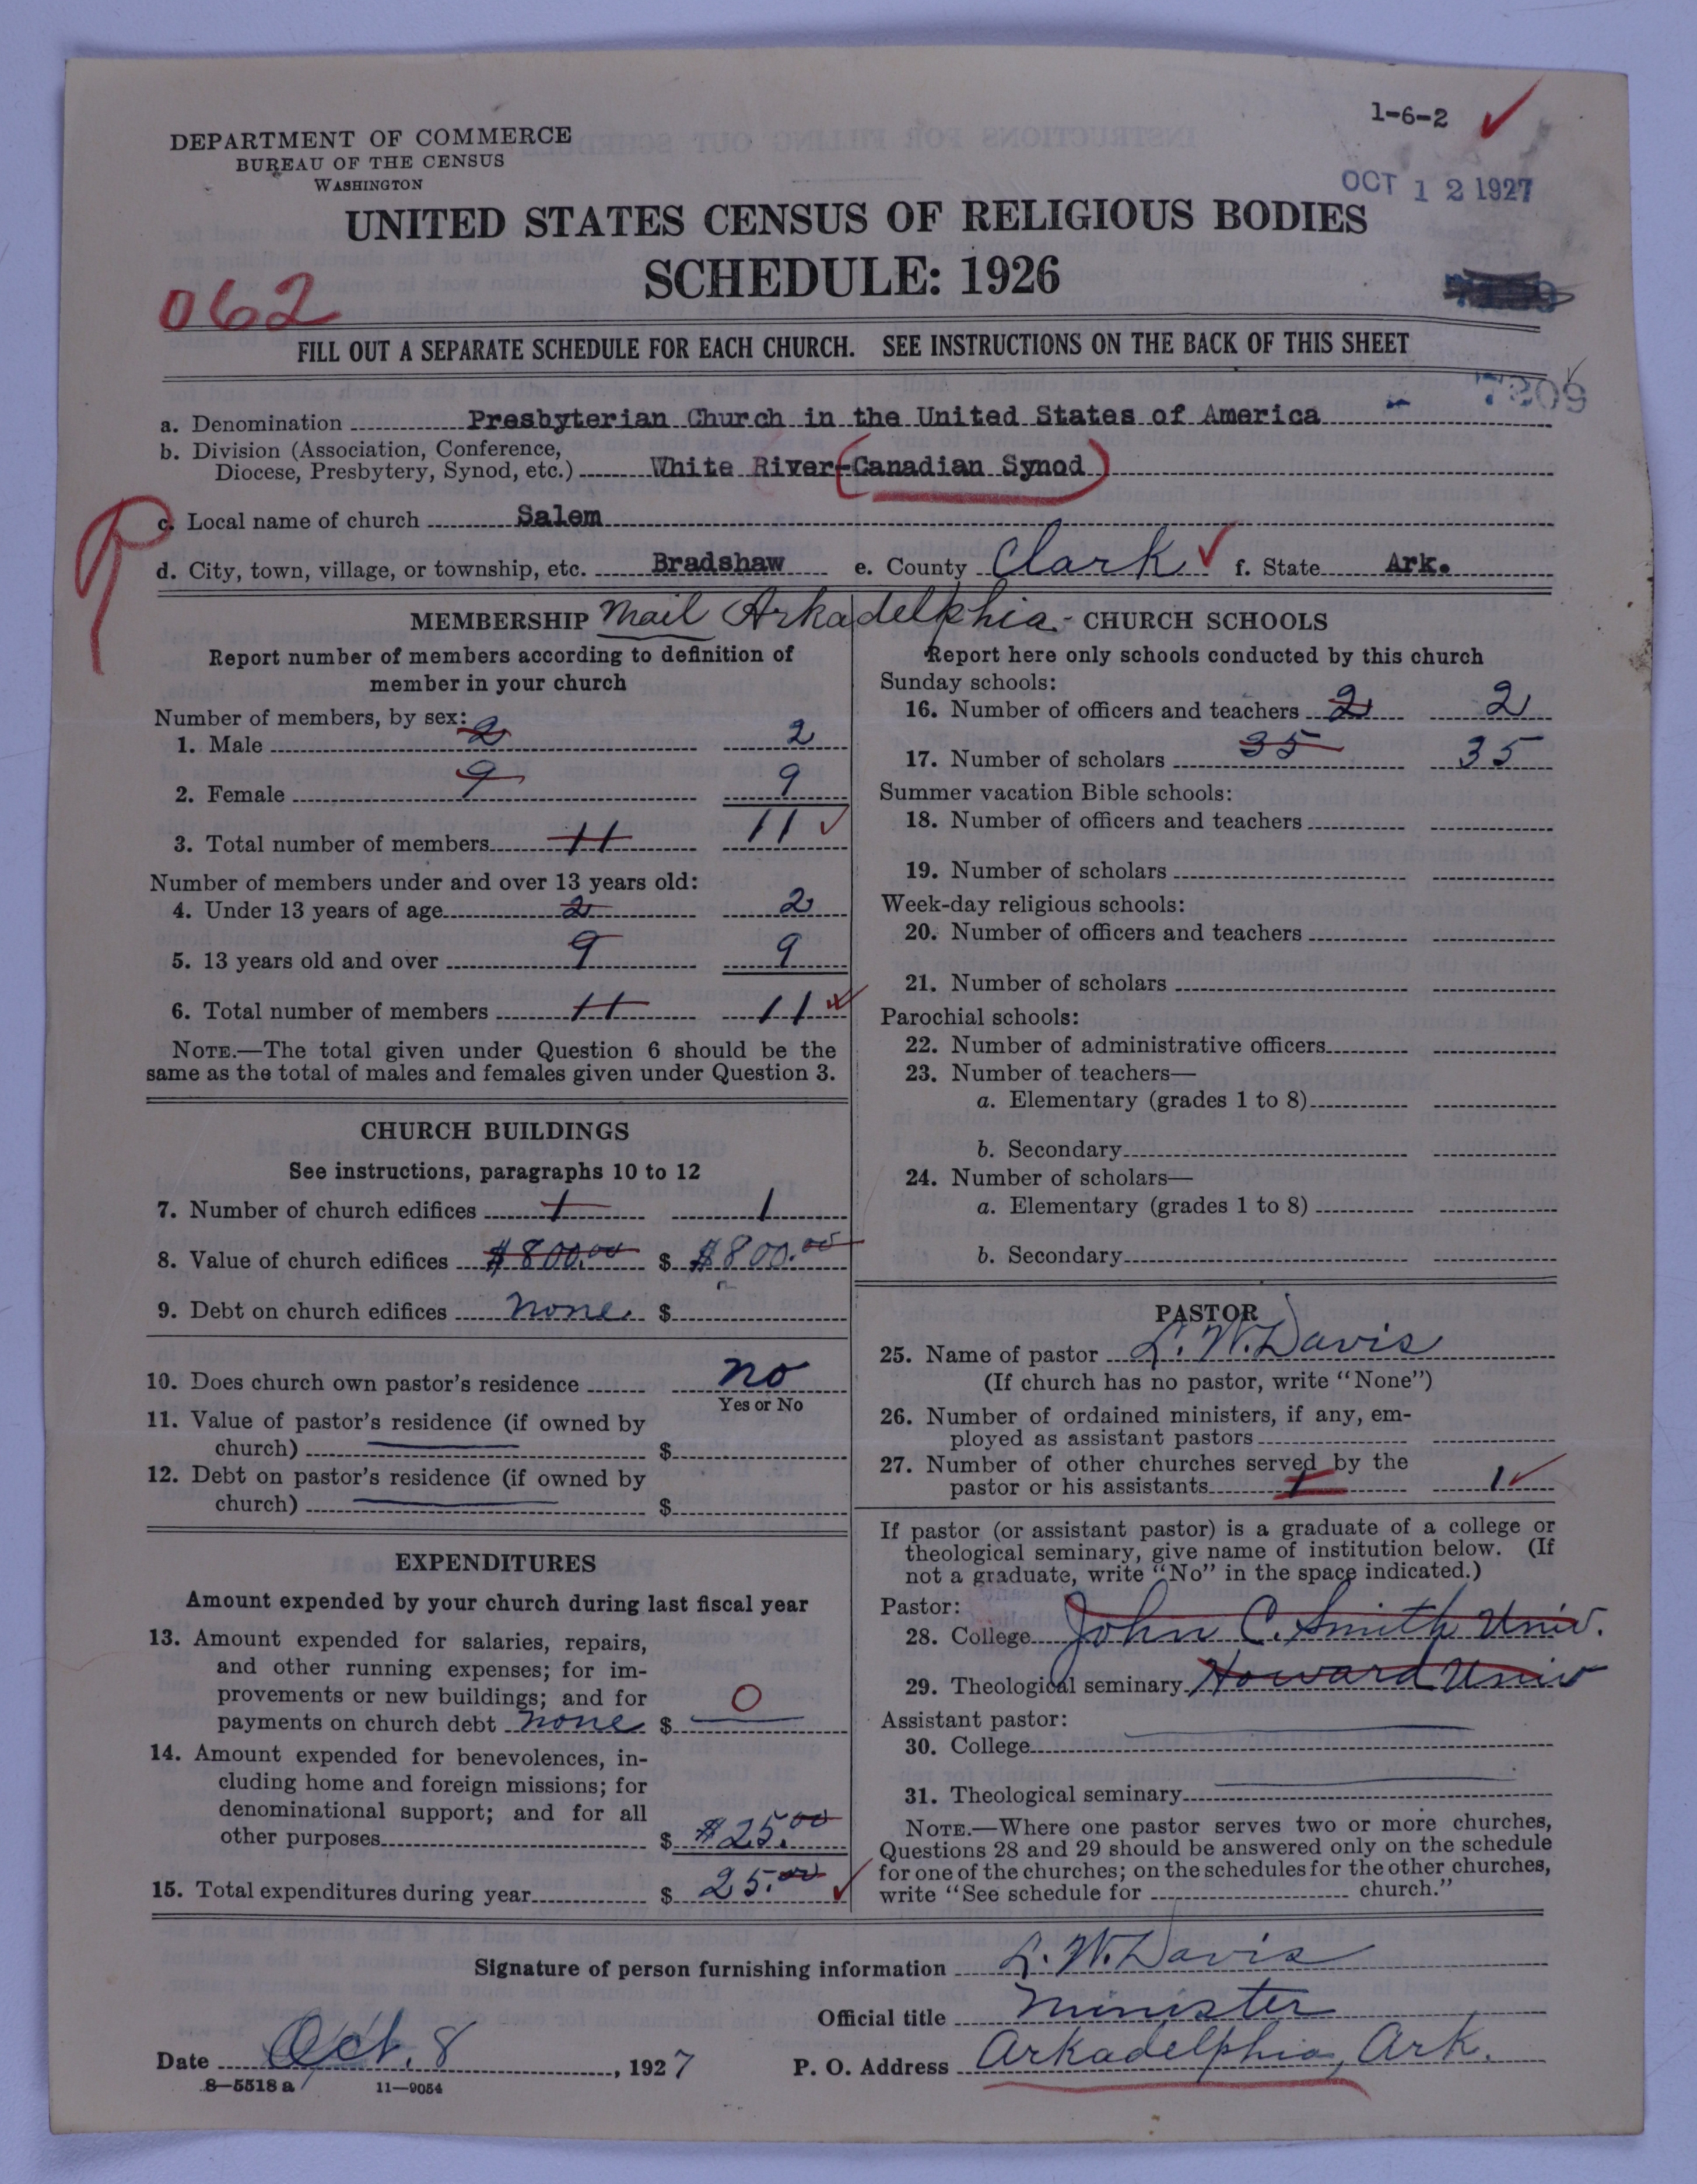 1-6-2
DEPARTMENT OF COMMERCE
BUREAU OF THE CENSUS
WASHINGTON
OCT 12 1927
UNITED STATES CENSUS OF RELIGIOUS BODIES
SCHEDULE: 1926
062
FILL OUT A SEPARATE SCHEDULE FOR EACH CHURCH. SEE INSTRUCTIONS ON THE BACK OF THIS SHEET
7209
a. Denomination Presbyterian Church in the United States of America
b. Division (Association, Conference,
Diocese, Presbytery, Synod, etc.) White River-(Canadian Synod)
c. Local name of church Salem
d. City, town, village, or township, etc. Bradshaw e. County Clark f. State Ark.
Mail Arkadelphia
MEMBERSHIP
Report number of members according to definition of
member in your church
Number of members, by sex:
1. Male 2 2
2. Female 9 9
3. Total number of members 11 11
Number of members under and over 13 years old:
4. Under 13 years of age 2 2
5. 13 years old and over 9 9
6. Total number of members 11 11
NOTE.—The total given under Question 6 should be the
same as the total of males and females given under Question 3.
CHURCH BUILDINGS
See instructions, paragraphs 10 to 12
7. Number of church edifices 1 1
8. Value of church edifices $800.00 $ $800.00
9. Debt on church edifices none $
10. Does church own pastor's residence no
Yes or No
11. Value of pastor's residence (if owned by
church) $
12. Debt on pastor's residence (if owned by
church) $
EXPENDITURES
Amount expended by your church during last fiscal year
13. Amount expended for salaries, repairs,
and other running expenses; for im-
provements or new buildings; and for
payments on church debt none $ 0
14. Amount expended for benevolences, in-
cluding home and foreign missions; for
denominational support; and for all
other purposes $ $25.00
15. Total expenditures during year $ 25.00
CHURCH SCHOOLS
Report here only schools conducted by this church
Sunday schools:
16. Number of officers and teachers 2 2
17. Number of scholars 35 35
Summer vacation Bible schools:
18. Number of officers and teachers
19. Number of scholars
Week-day religious schools:
20. Number of officers and teachers
21. Number of scholars
Parochial schools:
22. Number of administrative officers
23. Number of teachers—
a. Elementary (grades 1 to 8)
b. Secondary
24. Number of scholars—
a. Elementary (grades 1 to 8)
b. Secondary
PASTOR
25. Name of pastor L. W. Davis
(If church has no pastor, write "None")
26. Number of ordained ministers, if any, em-
ployed as assistant pastors
27. Number of other churches served by the
pastor or his assistants 1 1
If pastor (or assistant pastor) is a graduate of a college or
theological seminary, give name of institution below. (If
not a graduate, write "No" in the space indicated.)
Pastor:
28. College John C. Smith Univ.
29. Theological seminary Howard Univ
Assistant pastor:
30. College
31. Theological seminary
NOTE.—Where one pastor serves two or more churches,
Questions 28 and 29 should be answered only on the schedule
for one of the churches; on the schedules for the other churches,
write "See schedule for church."
Signature of person furnishing information L. W. Davis
Official title Minister
Date Oct. 8, 1927 P. O. Address Arkadelphia, Ark.
8—5518 a 11—9054